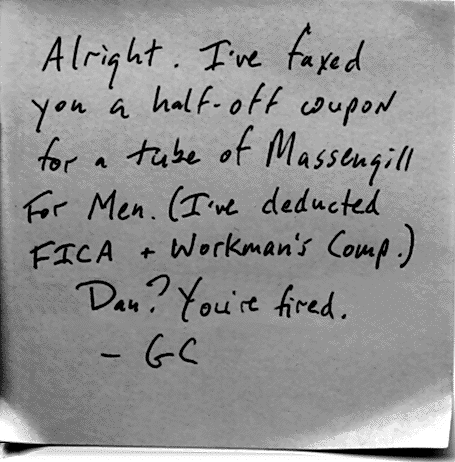 Alright. I've faxed
you a half-off coupon
for a tube of Massengill
For Men. (I've deducted
FICA + Workman's Comp.)
Dan? You're fired.
- GC